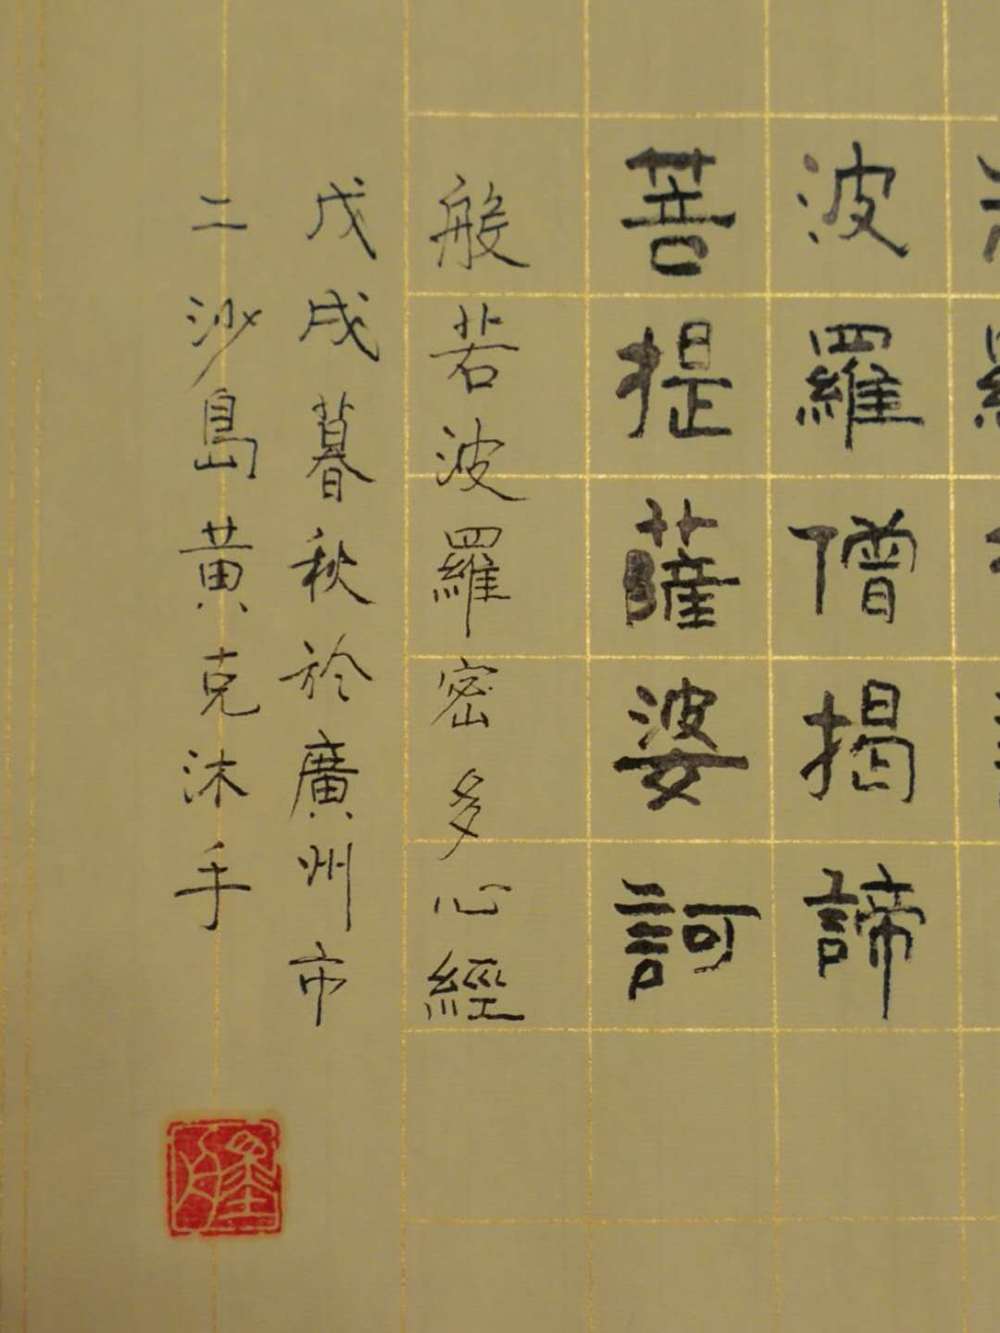 波羅僧揭諦
菩提薩婆訶
般若波羅密多心經
戊戌暮秋於廣州市
二沙島黄克沐手